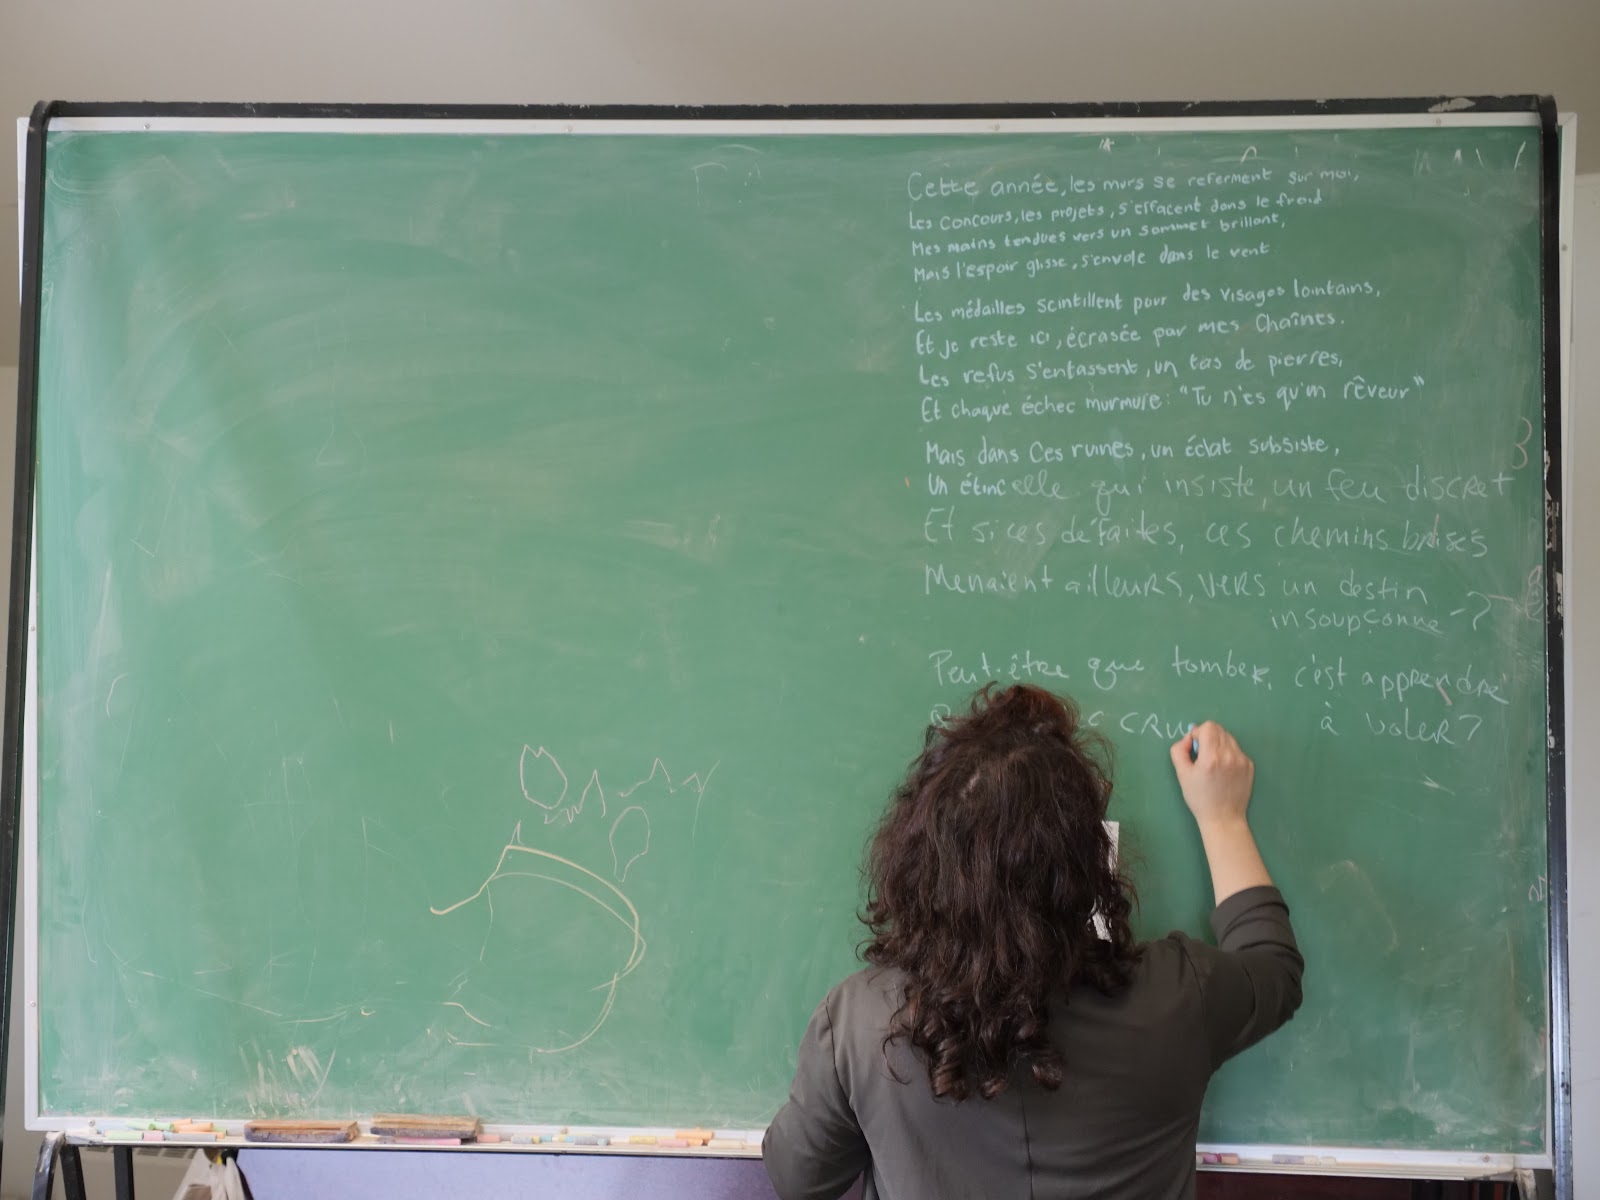 Cette année, les murs se referment sur moi,
Les concours, les projets, s'effacent dans le froid
Mes mains tendues vers un sommet brillant,
Mais l'espoir glisse, s'envole dans le vent
Les médailles scintillent pour des visages lointains,
Et je reste ici, écrasée par mes chaînes.
Les refus s'entassent, un tas de pierres,
Et chaque échec murmure: "Tu n'es qu'un rêveur"
Mais dans ces ruines, un éclat subsiste,
Un étincelle qui insiste, un feu discret
Et si ces défaites, ces chemins brisés
Menaient ailleurs, vers un destin
insoupçonné - ?
Peut-être que tomber, c'est apprendre
à voler?